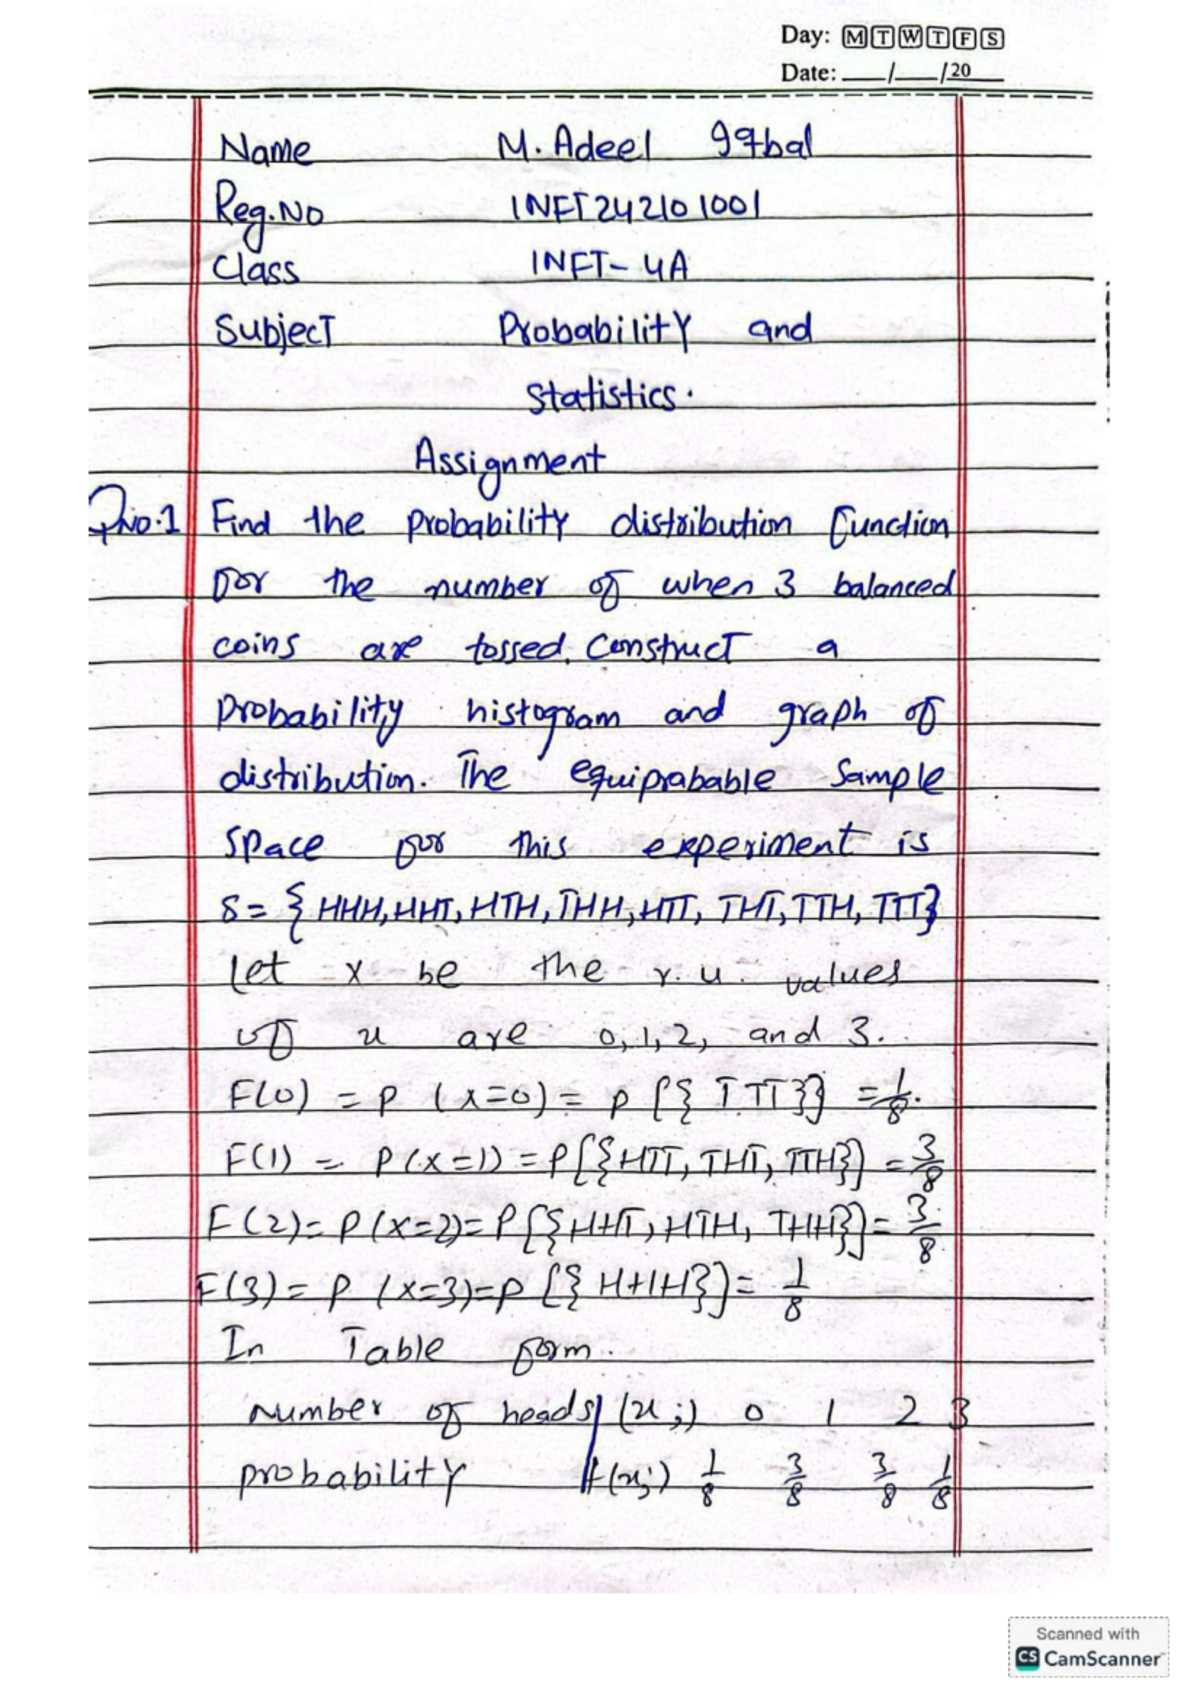 Day: M T W T F S
Date: ___/___/20___
Name M. Adeel Iqbal
Reg.No INFT242101001
Class INFT-4A
Subject Probability and
Statistics.
Assignment
QNo:1 Find the probability distribution function
for the number of when 3 balanced
coins are tossed. Construct a
Probability histogram and graph of
distribution. The equiprabable Sample
Space for this experiment is
S = { HHH, HHT, HTH, THH, HTT, THT, TTH, TTT}
Let x be the r.u. values
of x are 0,1,2, and 3.
F(0) = P (x=0) = P [{ TTT }] = 1/8.
F(1) = P(x=1) = P[{HTT, THT, TTH}] = 3/8
F(2) = P(x=2) = P[{HHT, HTH, THH}] = 3/8
F(3) = P (x=3) = P [{ HHH}] = 1/8
In Table form.
Number of heads (x;) 0 1 2 3
probability f(x;) 1/8 3/8 3/8 1/8
Scanned with
CS CamScanner